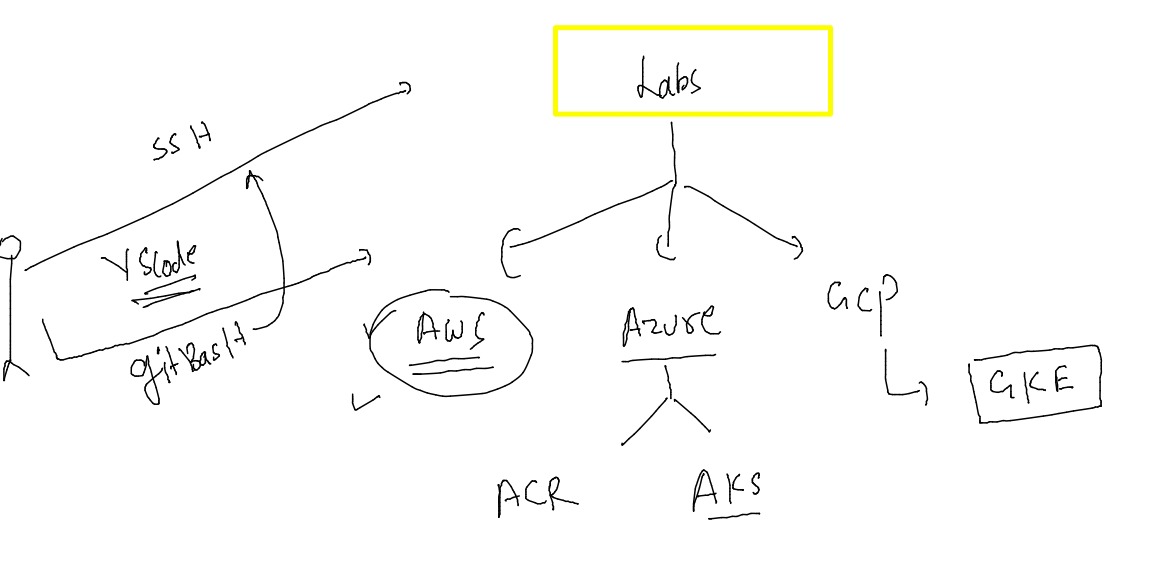 Labs
SSH
VSCode
gitBasH
AWS
Azure
GCP
GKE
ACR
AKS